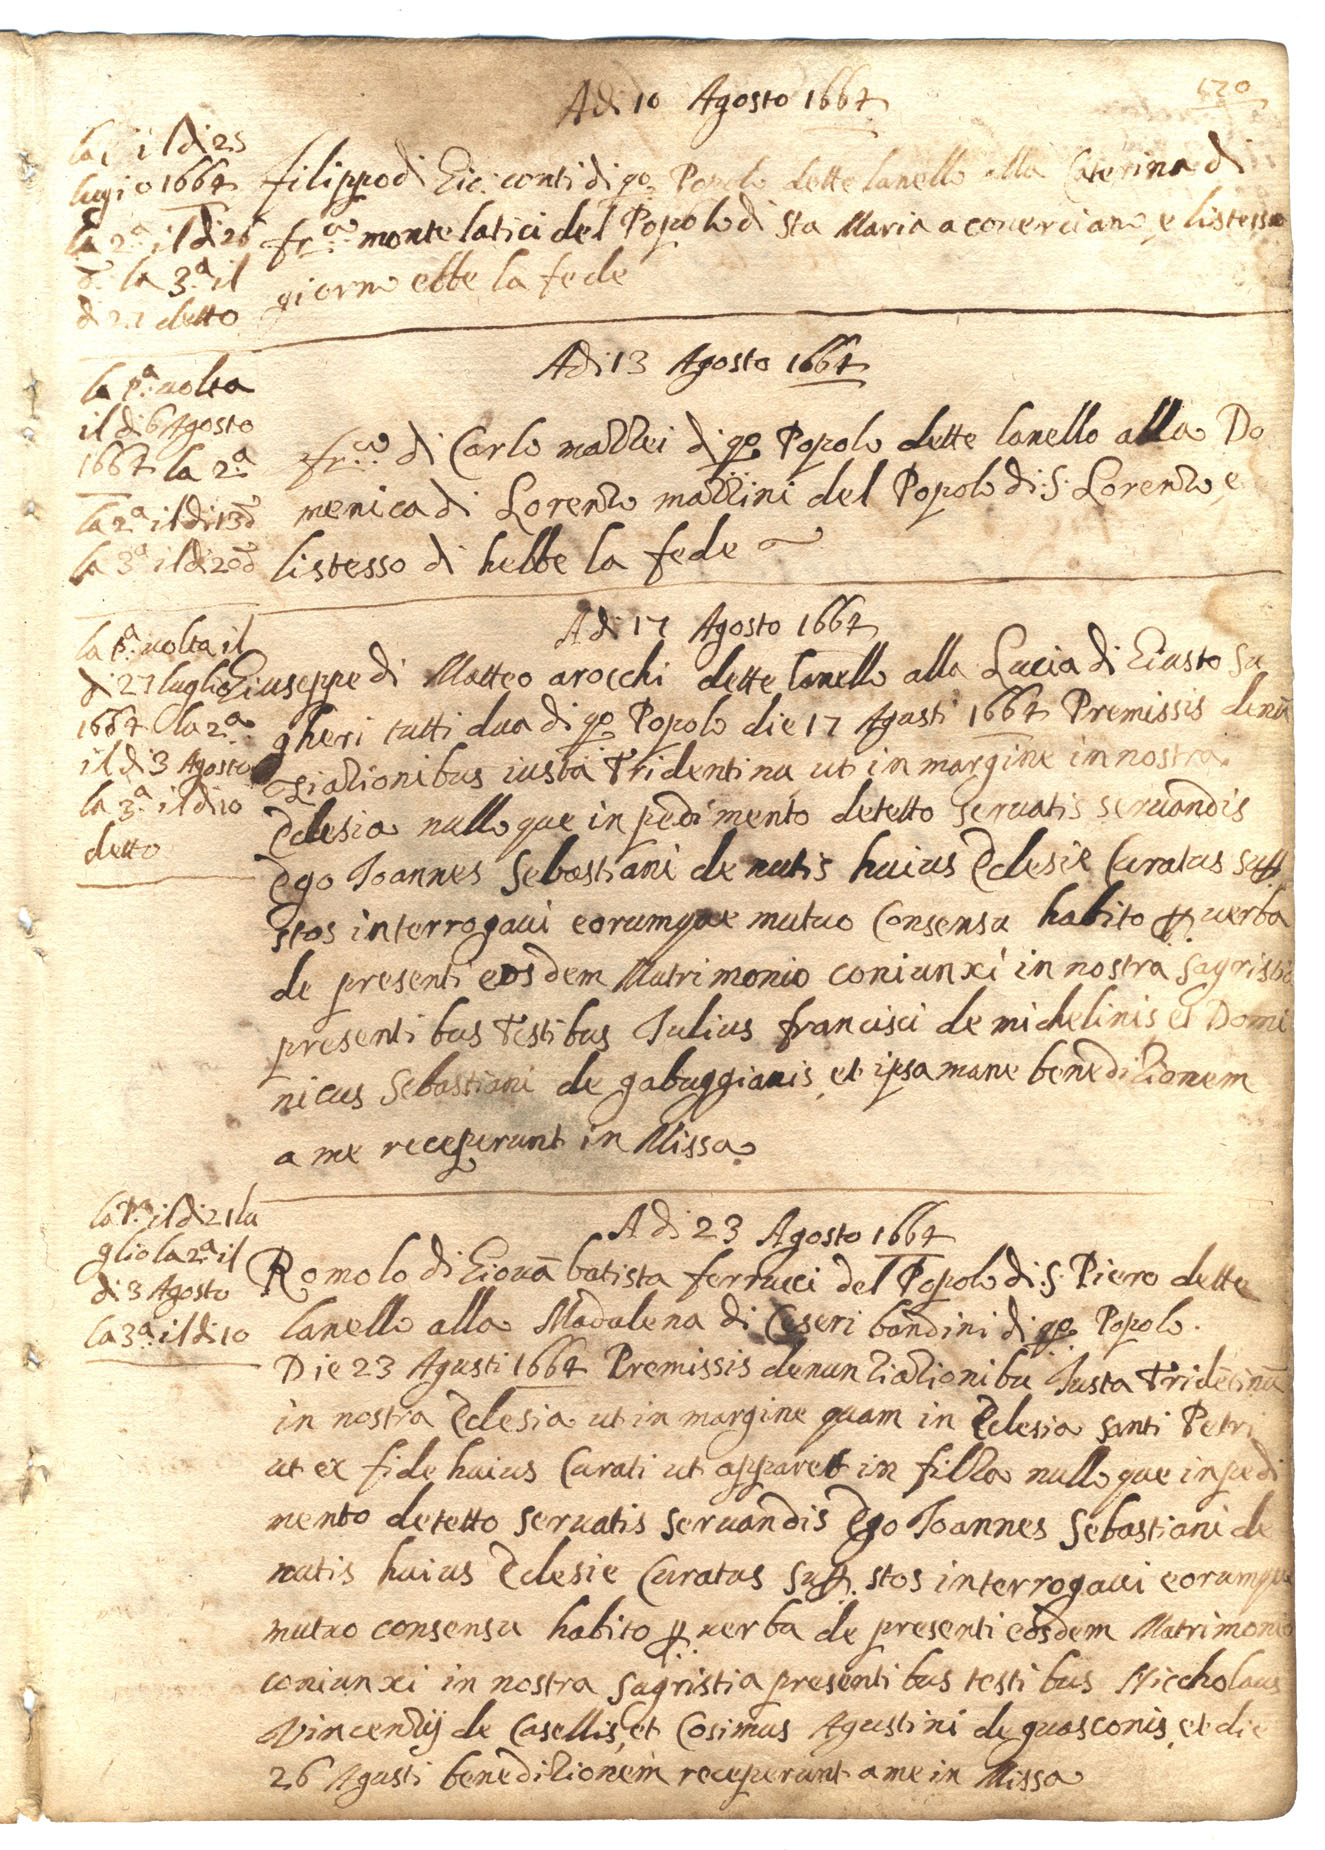 120
Adi 10 Agosto 1664
la il di 25
lugio 1664
la 2.a il di 26
d.o la 3.a il
di 27 detto
filippo di Gio: conti di qo. Popolo dette lanello alla Caterina di
fr.ca monte latici del Popolo di Sta Maria a coverciano, e listesso
giorno ebbe la fede
Adi 13 Agosto 1664
la p.a uolta
il di 6 Agosto
1664 la 2.a
la 2.a il di 13 d.o
la 3.a il di 20 d.o
fr.co di Carlo mazzei di qo. Popolo dette lanello alla Do
menica di Lorenzo mazzini del Popolo di S. Lorenzo, e
listesso di hebbe la fede
Adi 17 Agosto 1664
la p.a uolta il
di 27 luglio
1664 la 2.a
il di 3 Agosto
la 3.a il di 10
detto
Giuseppe di Matteo arocchi dette lanello alla Lucia di Giusto Su
gheri tutti dua di qo. Popolo die 17 Agusti 1664 Premissis denũ
ziazionibus iusta Tridentinũ ut in margine in nostra
Eclesia nulloque inpedimento detetto seruatis seruandis
Ego Joannes Sebastiani de nutis huius Eclesie Curatus supp.
stos interrogaui eorumque mutuo Consensu habito p. uerba
de presenti eosdem Matrimonio coniunxi in nostra sagristia
presentibus Testibus Julius francisci de michelinis et Domi
nicus Sebastiani de gabuggianis, et ipsa mane benedizionem
a me receperunt in Missa
Adi 23 Agosto 1664
la p.a il di 21 lu
glio la 2.a il
di 3 Agosto
la 3.a il di 10
Romolo di Giouã batista ferrucci del Popolo di S. Piero dette
lanello alla Madalena di Ceseri bandini di qo. Popolo.
Die 23 Agusti 1664 Premissis denunziazionibu Justa Tridẽtinũ
in nostra Eclesia ut in margine quam in Eclesia santi Petri
ut ex fide huius Curati ut apparet in filza nulloque inpedi
mento detetto seruatis seruandis Ego Joannes Sebastiani de
nutis huius Eclesie Curatus supp. stos interrogaui eorumque
mutuo consensu habito p. uerba de presenti eosdem Matrimonio
coniunxi in nostra sagristia presentibus testibus Niccholaus
Vincentij de Casellis, et Cosimus Agustini de guasconis, et die
26 Agusti benedizionem receperunt a me in Missa